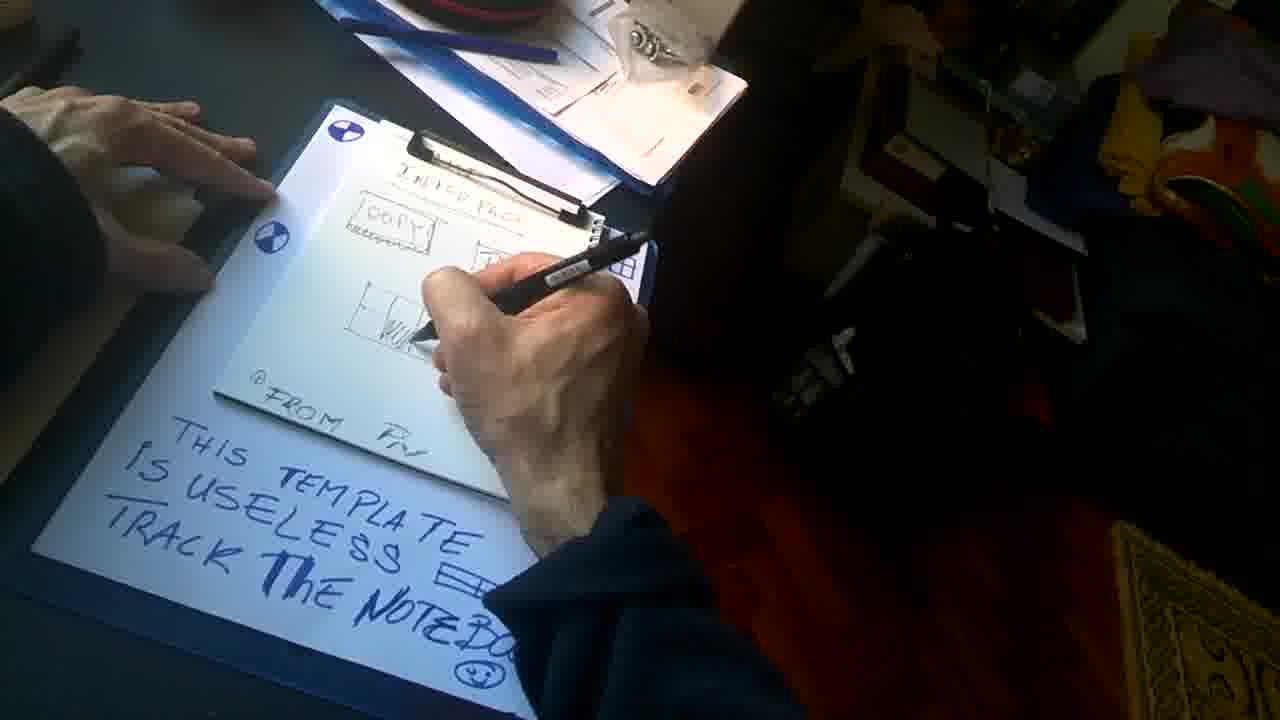 INTERFACE
COPY
① FROM
THIS TEMPLATE
IS USELESS
TRACK THE NOTEBO